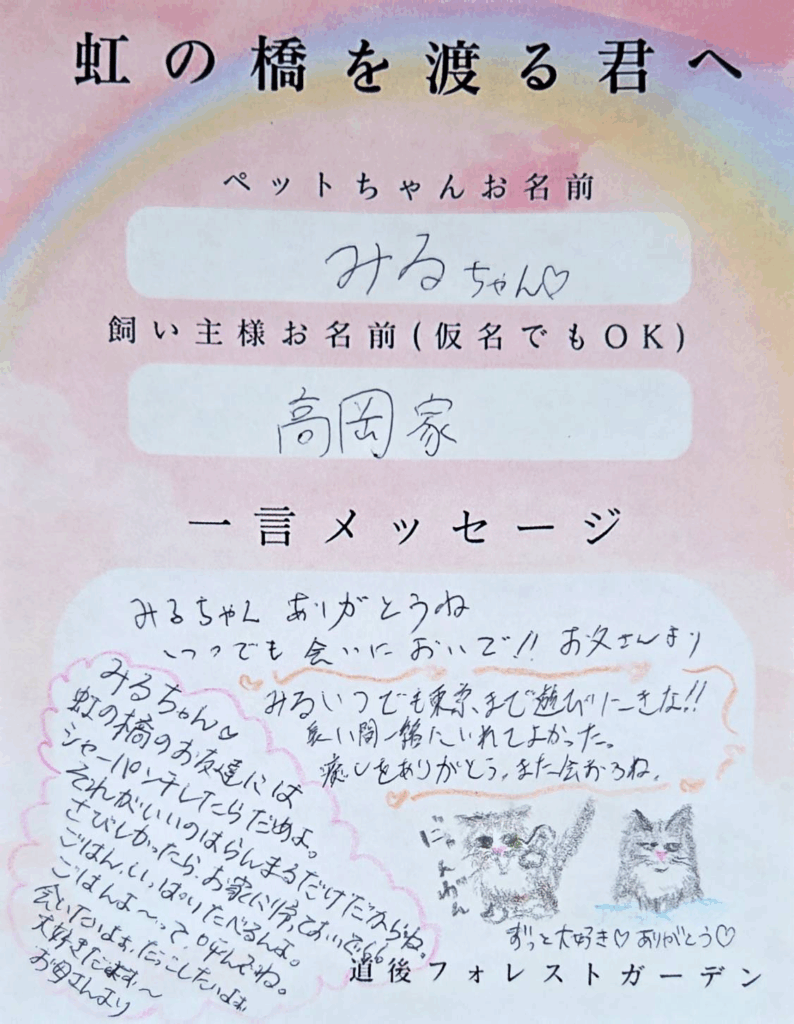 虹の橋を渡る君へ
ペットちゃんお名前
みるちゃん♡
飼い主様お名前(仮名でもOK)
高岡家
一言メッセージ
みるちゃん ありがとうね
いつでも 会いに おいで!! お父さんより
みるいつでも東京まで遊びにーきな!!
長い間一緒にいれてよかった。
癒しをありがとう。また会おうね。
みるちゃん♡
虹の橋のお友達には
シャーパンチしたらだめよ。
それがいいのはらんまるだけだからね。
さびしかったら、お家に帰っておいでね。
ごはん、いっぱいたべるんよ。
ごはんよ〜って、呼んでね。
会いたいよぉ、だっこしたいよぉ
大好きだよ〜
お母さんより
にゃんがん
ずっと大好き♡ありがとう♡
道後フォレストガーデン